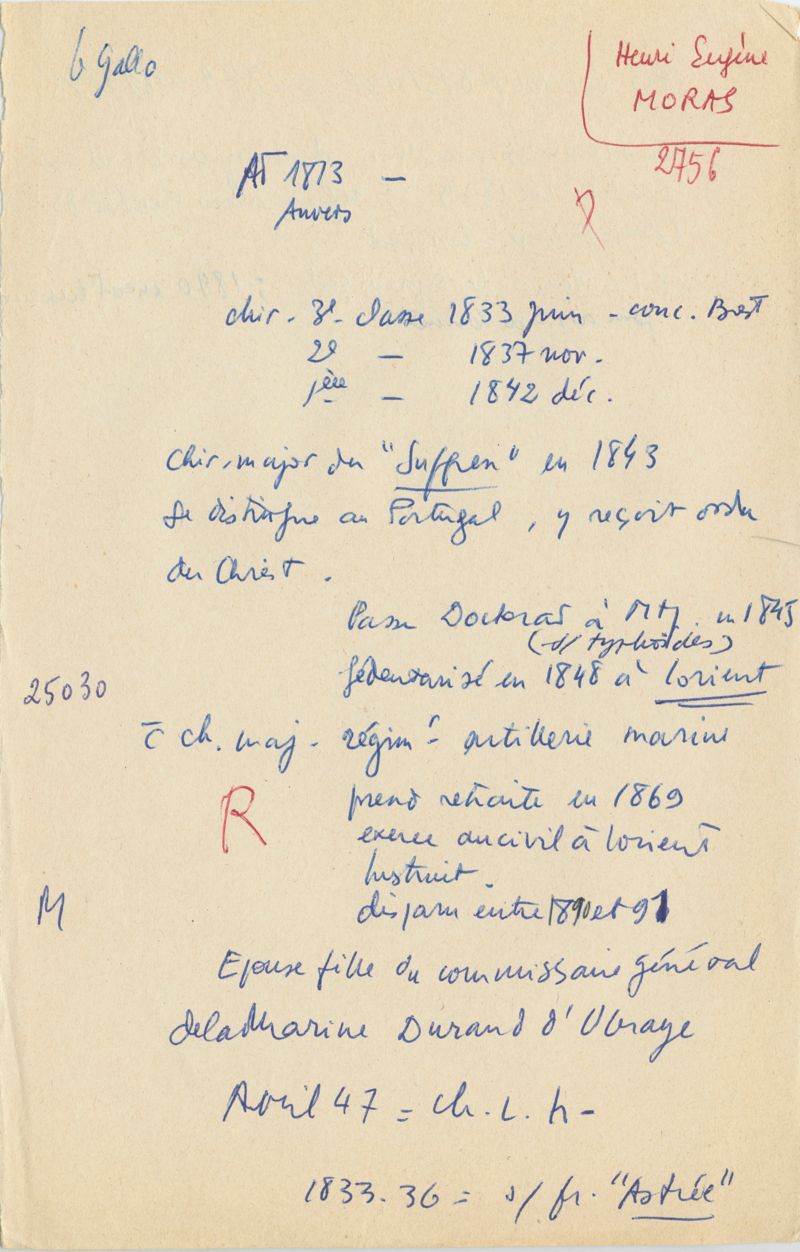 b Gallo
Henri Eugène
MORAS
2756
1813 —
Anvers
R
chir. 3e classe 1833 juin - conc. Brest
2e — 1837 nov.
1ère — 1842 déc.
chir. major du "Suffren" en 1843
Se distingue au Portugal, y reçoit ordre
du Christ.
Passe Doctorat à en 1845
(s/ typhoïdes)
Sédentarisé en 1848 à Lorient
25030
c̄ ch. maj. régimt artillerie marine
prend retraite en 1869
R
exerce au civil à Lorient
Instruit.
M
disparu entre 1890 et 91
Epouse fille du commissaire général
de la Marine Durand d'Ubraye
Avril 47 = ch. L. h -
1833.36 = s/ fr. "Astrée"